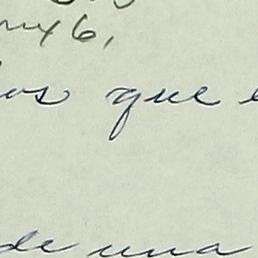 6,
os que
de una